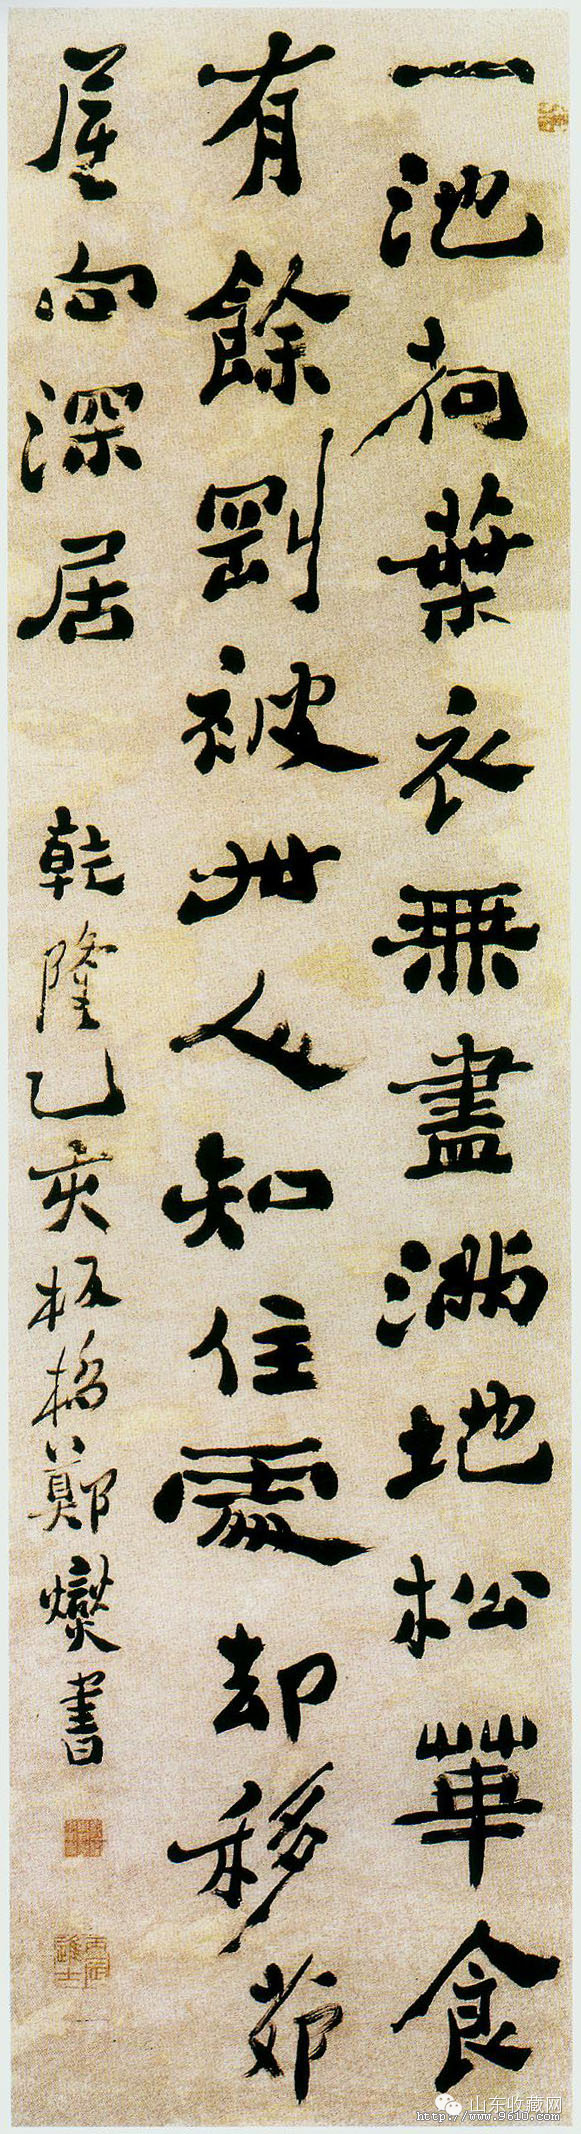 一池荷葉衣無盡滿地松華食
有餘剛被世人知住處却移茆
屋向深居
乾隆乙亥板橋鄭燮書
山东收藏网
http://www.9610.com